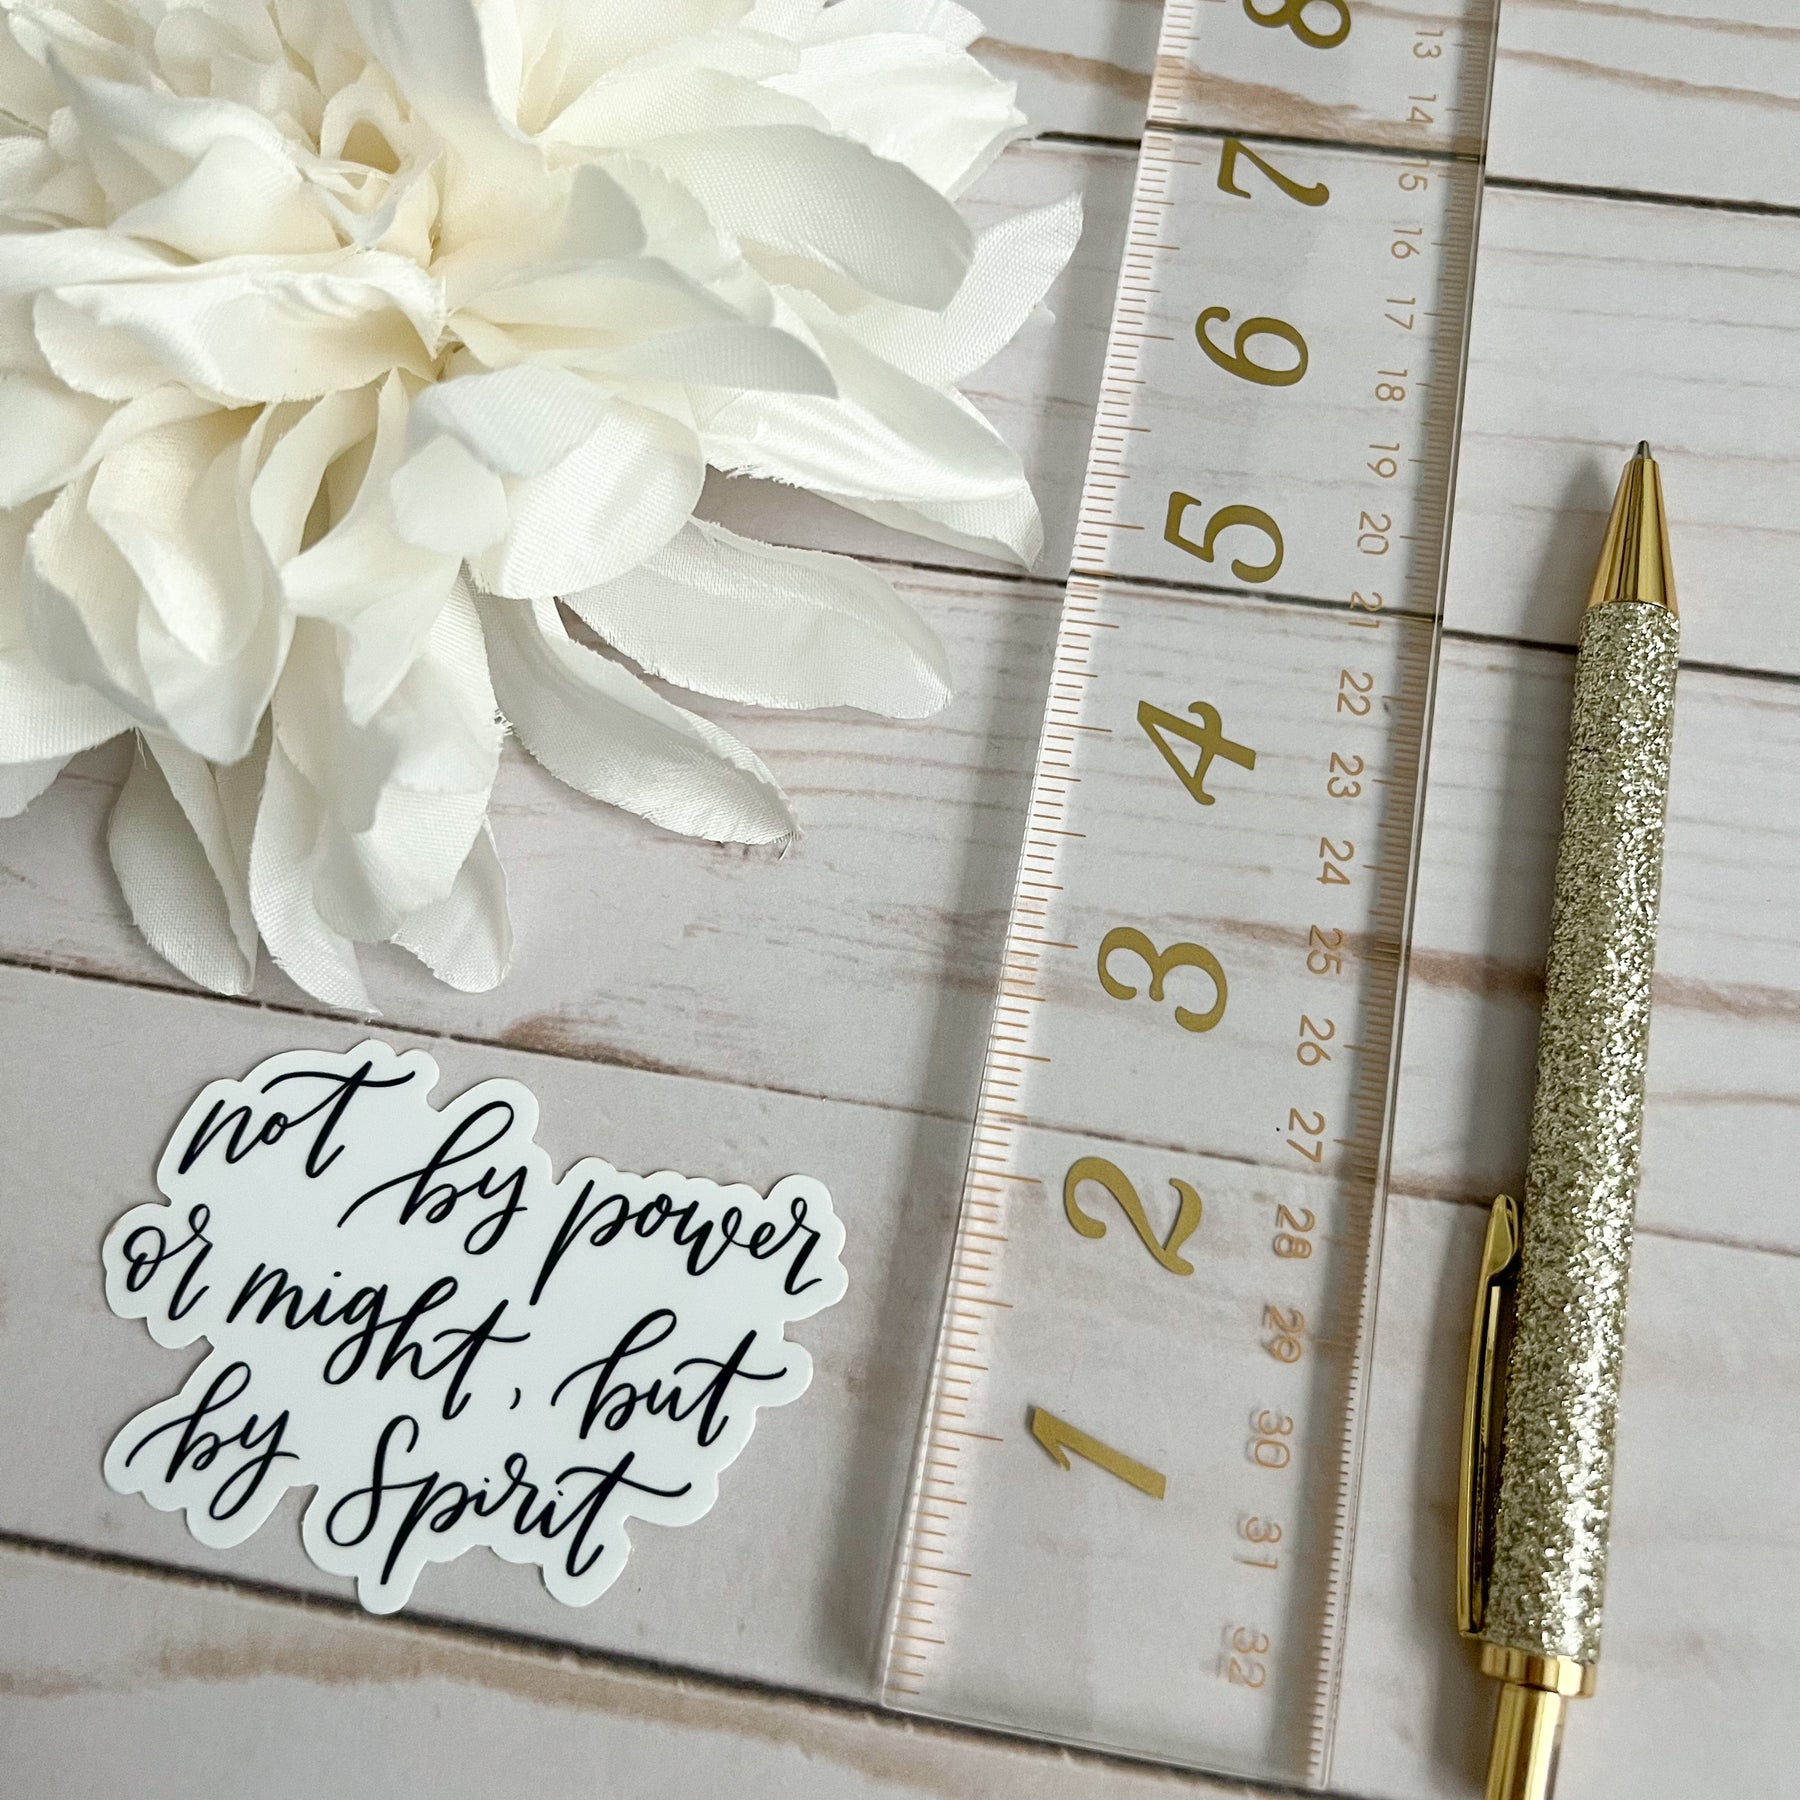 not by power
or might, but
by Spirit
8
7
6
5
4
3
2
1
13
14
15
16
17
18
19
20
21
22
23
24
25
26
27
28
29
30
31
32